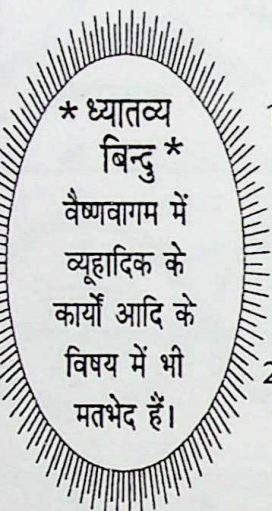 * ध्यातव्य
बिन्दु *
वैष्णवागम में
व्यूहादिक के
कार्यों आदि के
विषय में भी
मतभेद हैं।
2